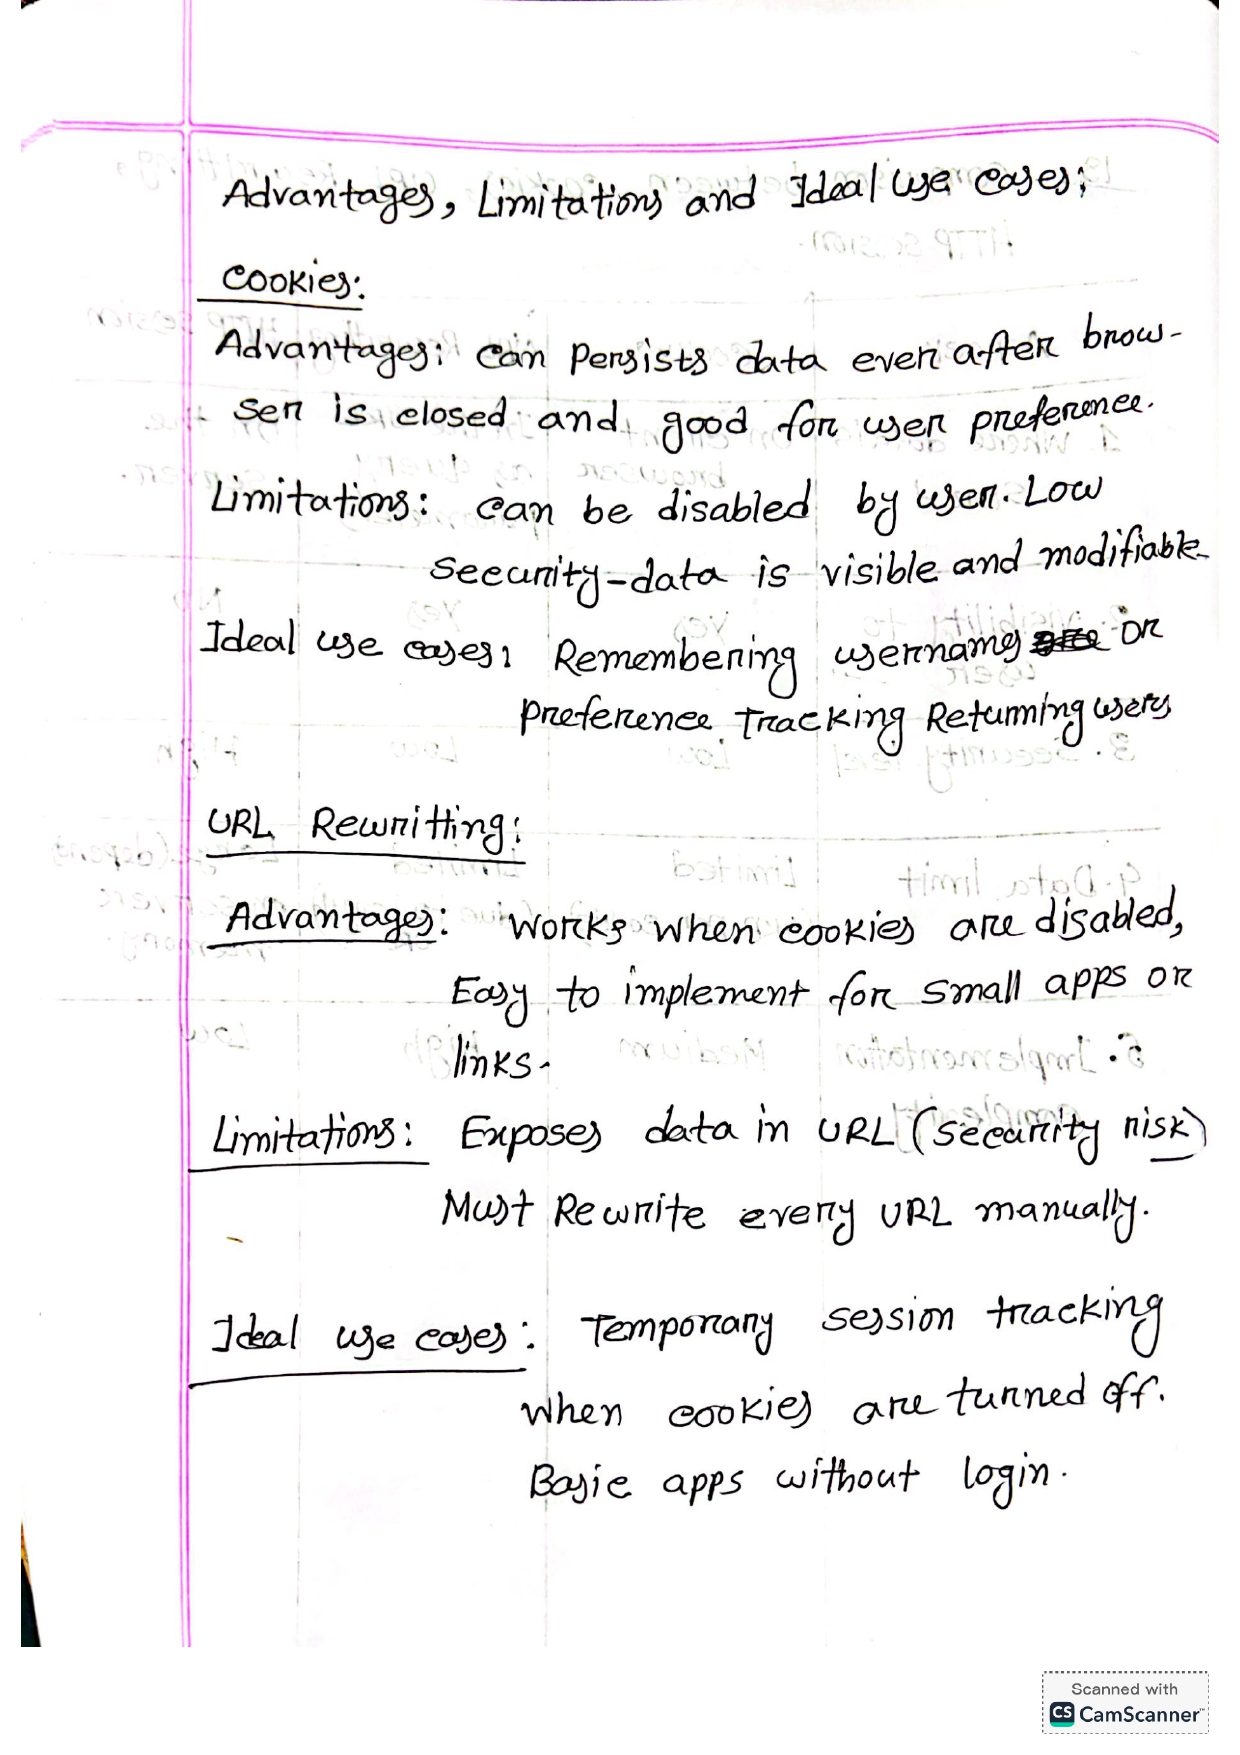 Advantages, Limitations and Ideal use cases;
Cookies:
Advantages: can Persists data even after brow-
ser is closed and good for user preference.
Limitations: can be disabled by user. Low
Security-data is visible and modifiable
Ideal use cases: Remembering usernames or
preference. Tracking Returning users
URL Rewritting:
Advantages: Works when cookies are disabled,
Easy to implement for small apps or
links.
Limitations: Exposes data in URL (security risk)
Must Rewrite every URL manually.
Ideal use cases: Temporary session tracking
when cookies are turned off.
Basic apps without login.
Scanned with
CS CamScanner